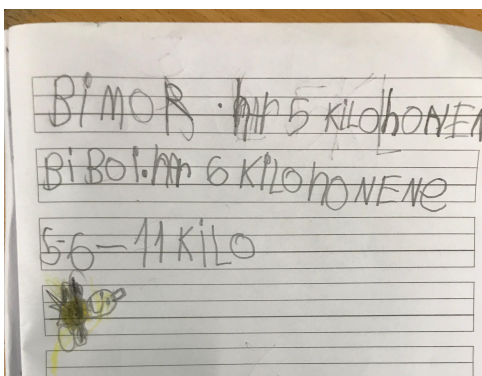 BiMOR . hAr 5 KiLO hONEN
BiBOi. hAr 6 KiLO hONENe
5-6-11 KiLO